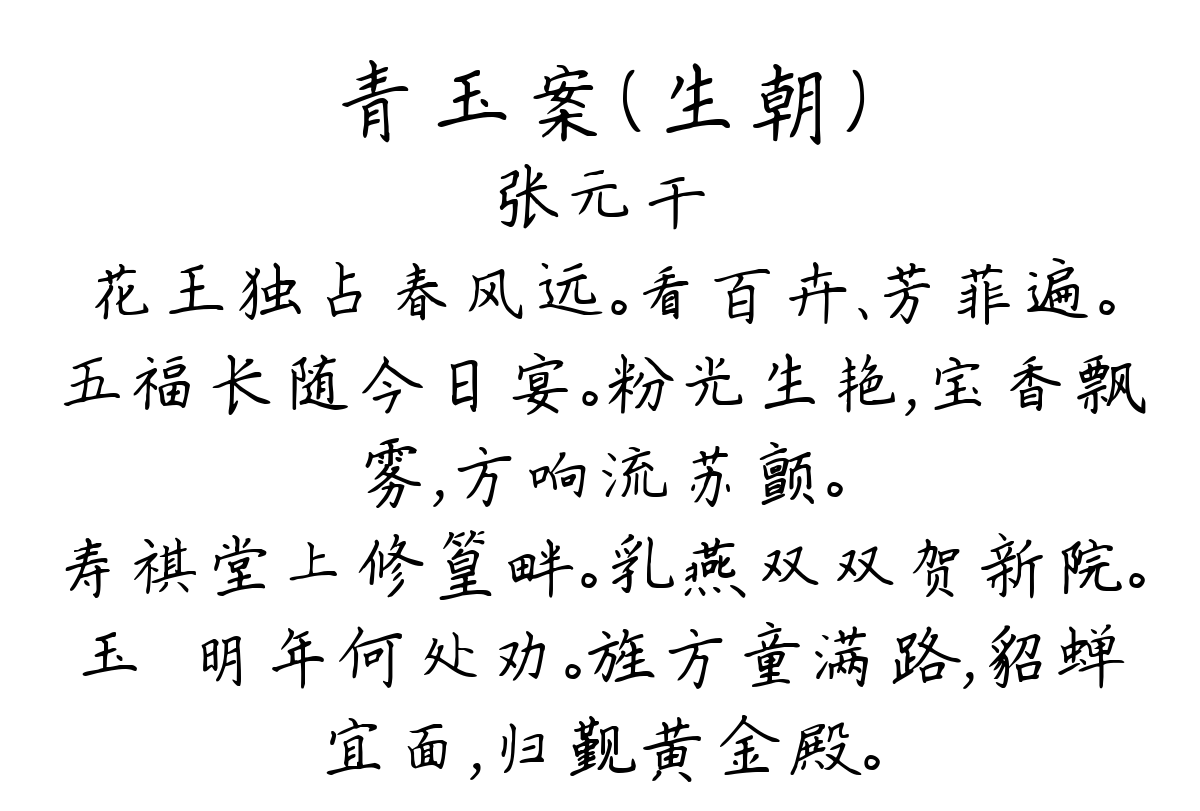 青玉案(生朝)
张元干
花王独占春风远。看百卉、芳菲遍。
五福长随今日宴。粉光生艳,宝香飘
雾,方响流苏颤。
寿祺堂上修篁畔。乳燕双双贺新院。
玉 明年何处劝。旌方童满路,貂蝉
宜面,归觐黄金殿。